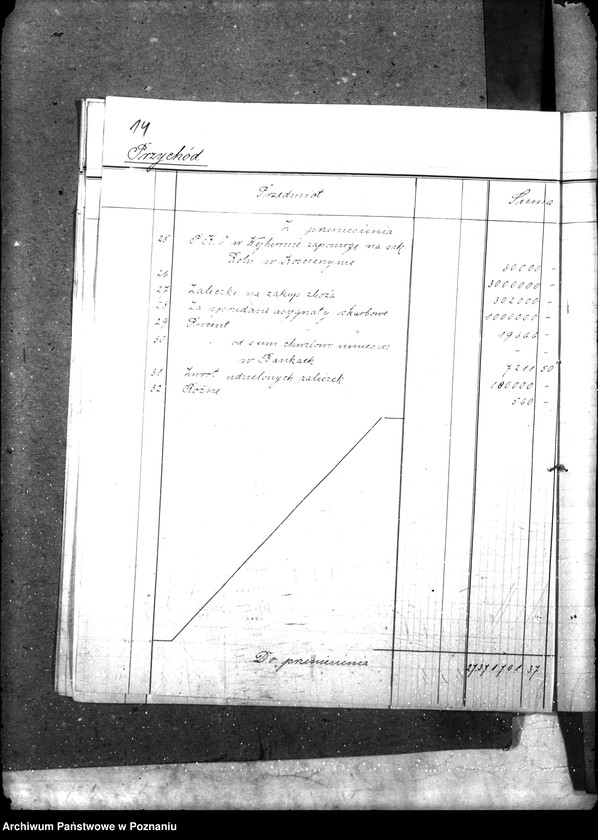 14
Przychód
Przedmiot Suma
Z przeniesienia
25 P.K.P. w zapomogę na szk.
Roln w Kościerzynie 30000 -
26 3000000 -
27 Zaliczka na zakup zboża 302000 -
28 Za sprzedane asygnaty skarbowe 1000000 -
29 Procent " " 19666 -
30 " od sum chwilowo umieszcz - -
w Bankach 7211 50
31 Zwrot udzielonych zaliczek 100000 -
32 Różne 560 -
Do przeniesienia 27371701 37
Archiwum Państwowe w Poznaniu